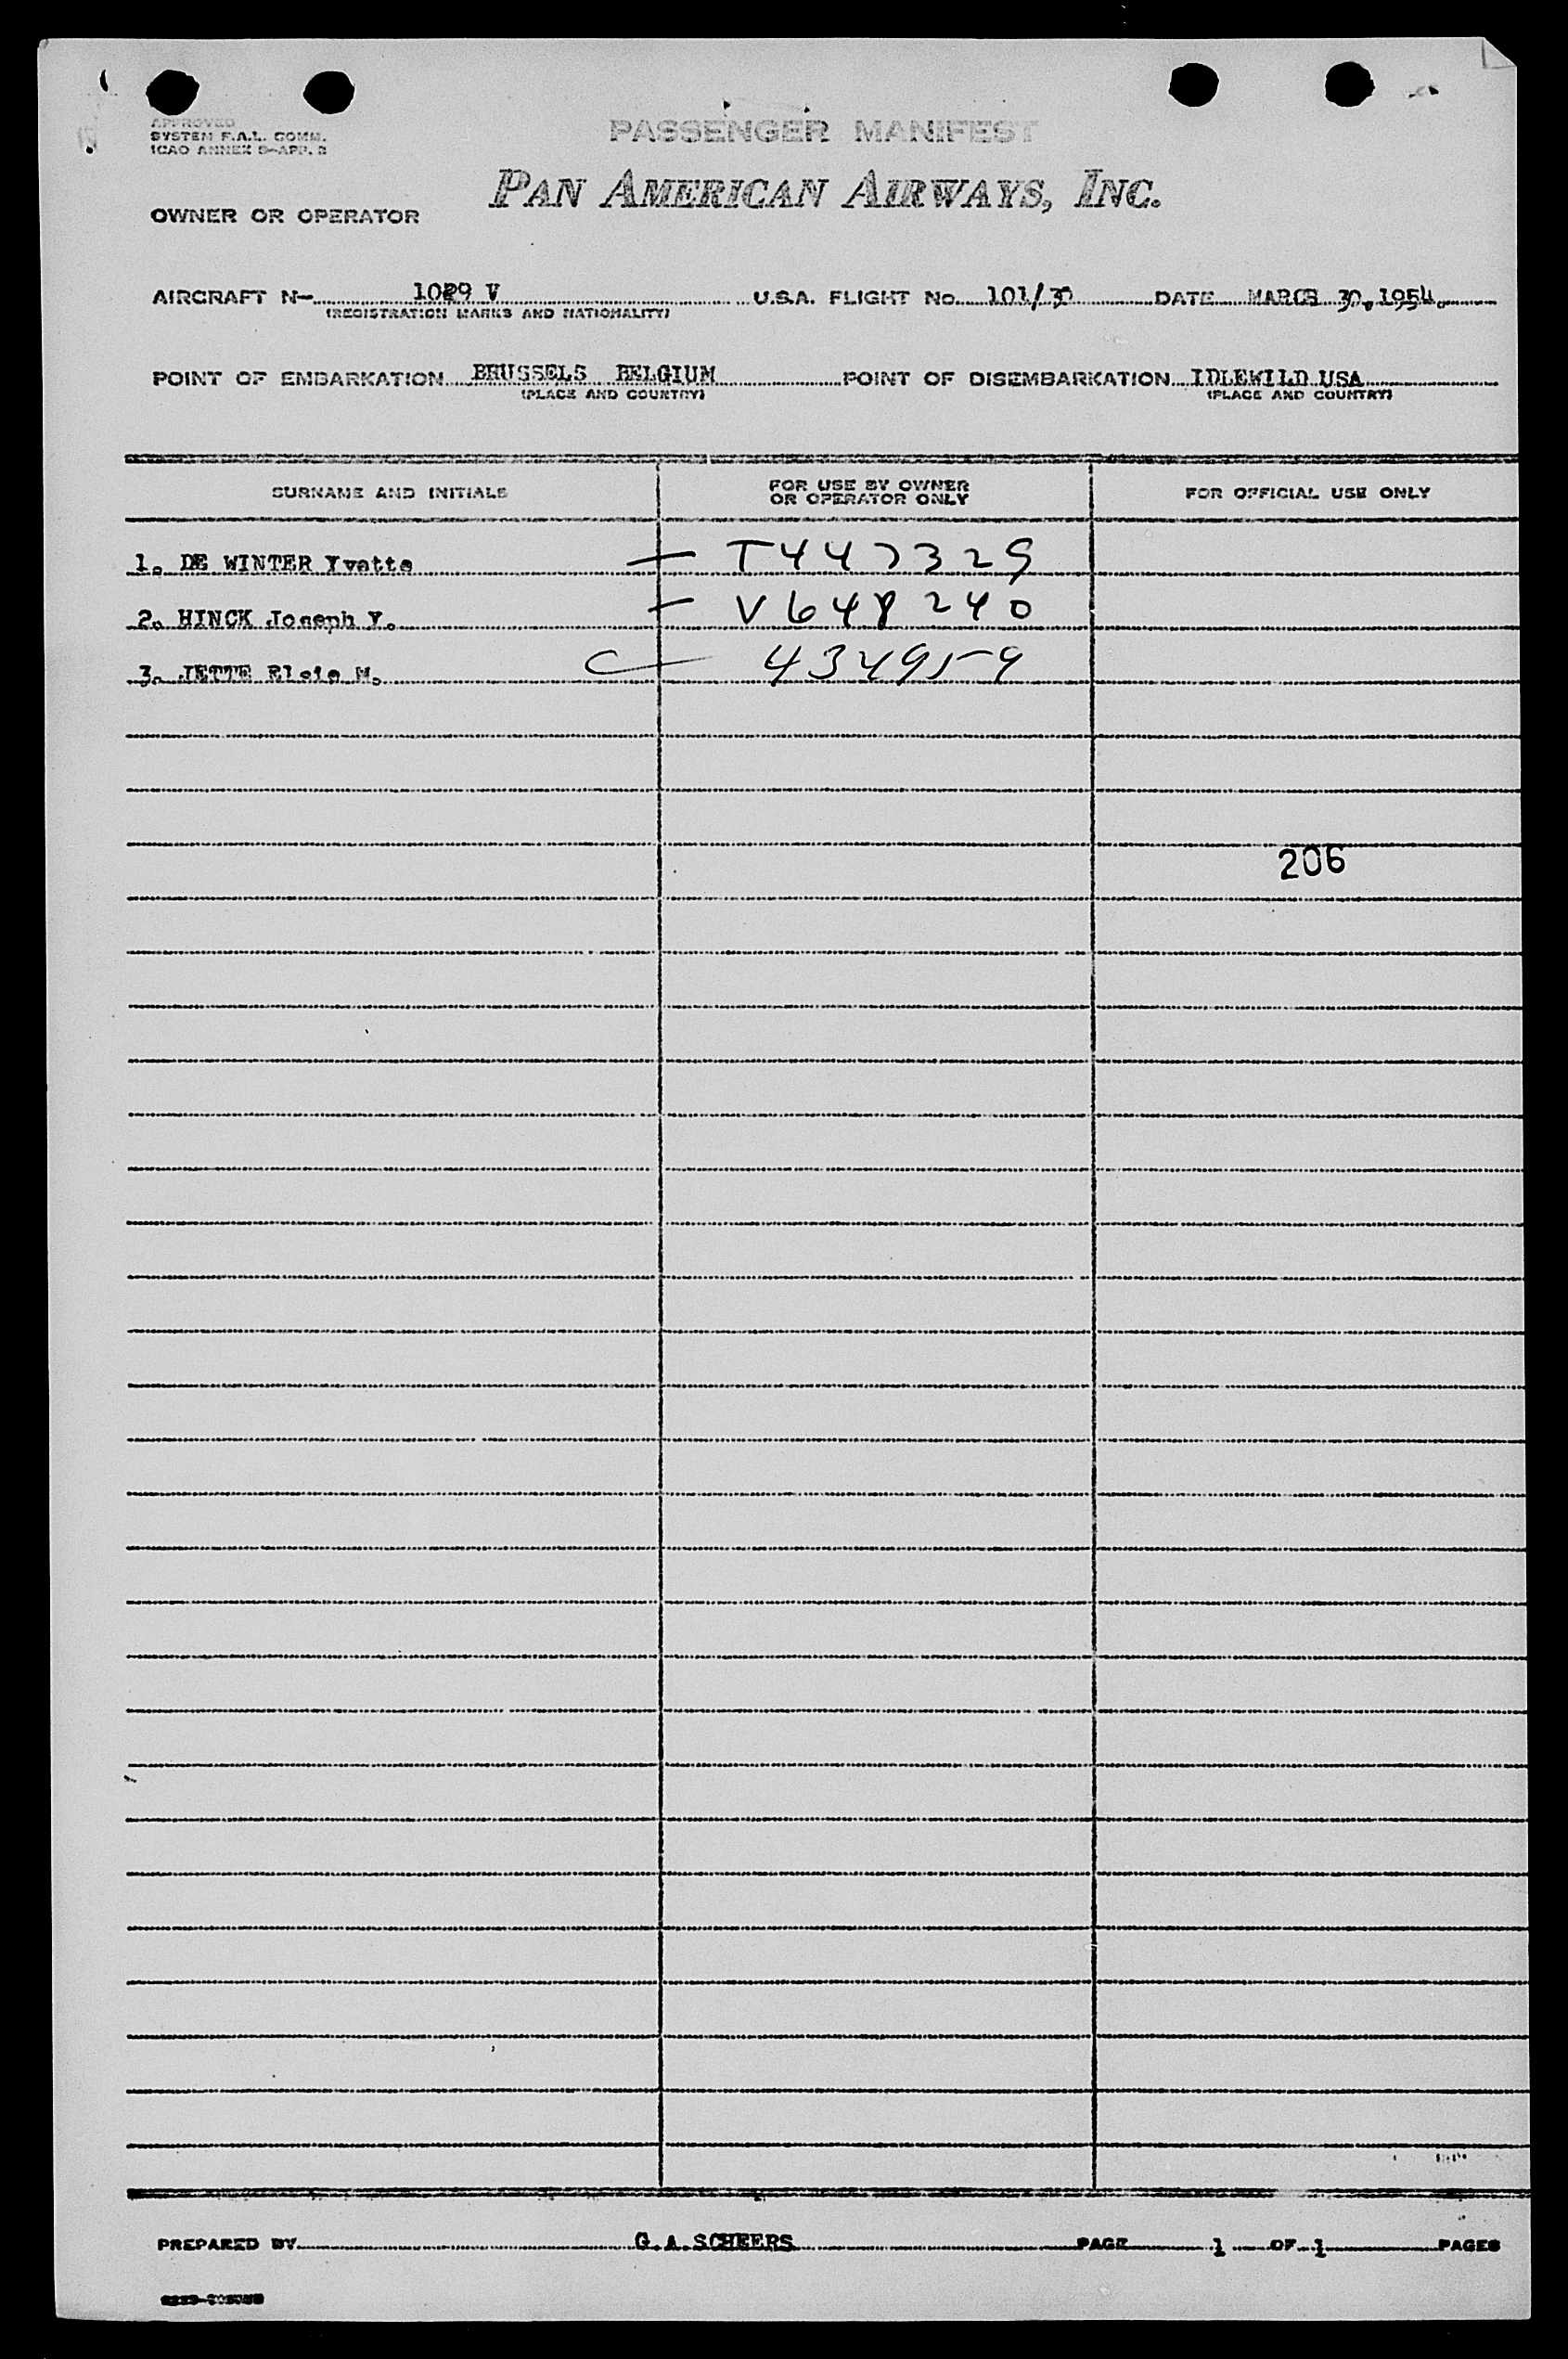 APPROVED
SYSTEM F.A.L. COMM.
ICAO ANNEX 9-APP. 2
PASSENGER MANIFEST
PAN AMERICAN AIRWAYS, INC.
OWNER OR OPERATOR
AIRCRAFT N- 1029 V U.S.A. FLIGHT No. 101/30 DATE MARCH 30, 1954.
(REGISTRATION MARKS AND NATIONALITY)
POINT OF EMBARKATION BRUSSELS BELGIUM POINT OF DISEMBARKATION IDLEWILD USA
(PLACE AND COUNTRY) (PLACE AND COUNTRY)
SURNAME AND INITIALS FOR USE BY OWNER OR OPERATOR ONLY FOR OFFICIAL USE ONLY
1. DE WINTER Yvette — T447329
2. HINCK Joseph V. — V648240
3. JETTE Elsie M. C— 434959
206
PREPARED BY G.A.SCHEERS PAGE 1 OF 1 PAGES